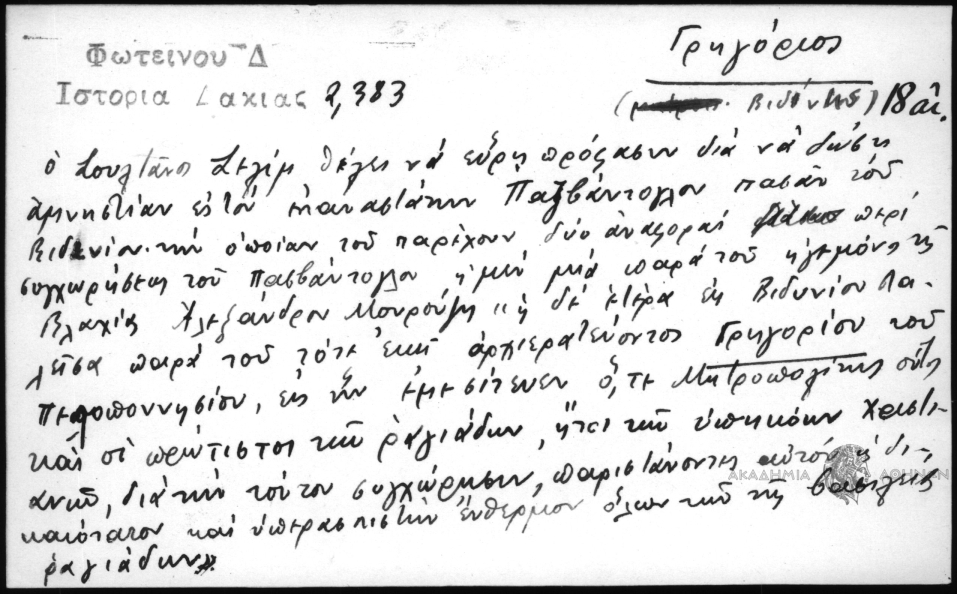 Φωτεινου Δ
Ιστορια Δακιας 2,383
Γρηγόριος
(Βιδύνης) 18 αἰ.
ὁ Σουλτάνος Σελήμ θέλει νά εὕρῃ πρόφασιν διά νά δώσῃ
ἀμνηστίαν εἰς τόν ἐπαναστάτην Παζβάντογλον πασᾶν τοῦ
Βιδυνίου. τήν ὁποίαν τοῦ παρέχουν δύο ἀναφοραί περί
συγχωρήσεως τοῦ Πασβάντογλου, ἡ μέν μιά παρά τοῦ ἡγεμόνος τῆς
Βλαχίας Ἀλεξάνδρου Μουρούζη "ἡ δέ ἑτέρα ἐκ Βιδυνίου σα-
λεῖσα παρά τοῦ τότε ἐκεῖ ἀρχιερατεύοντος Γρηγορίου τοῦ
Πελοποννησίου, εἰς ἥν ἐμεσίτευεν ὅ,τε Μητροπολίτης οὗτος
καί οἱ πρώτιστοι τῶν ῥαγιάδων, ἤτοι τῶν ὑπηκόων Χριστι-
ανῶν, διά τήν τούτου συγχώρησιν, παριστάνοντες αὐτόν ὡς δι-
καιότατον καί ὑπερασπιστήν ἔνθερμον ὅλων τῶν τῆς βασιλείας
ῥαγιάδων».
ΑΚΑΔΗΜΙΑ ΑΘΗΝΩΝ